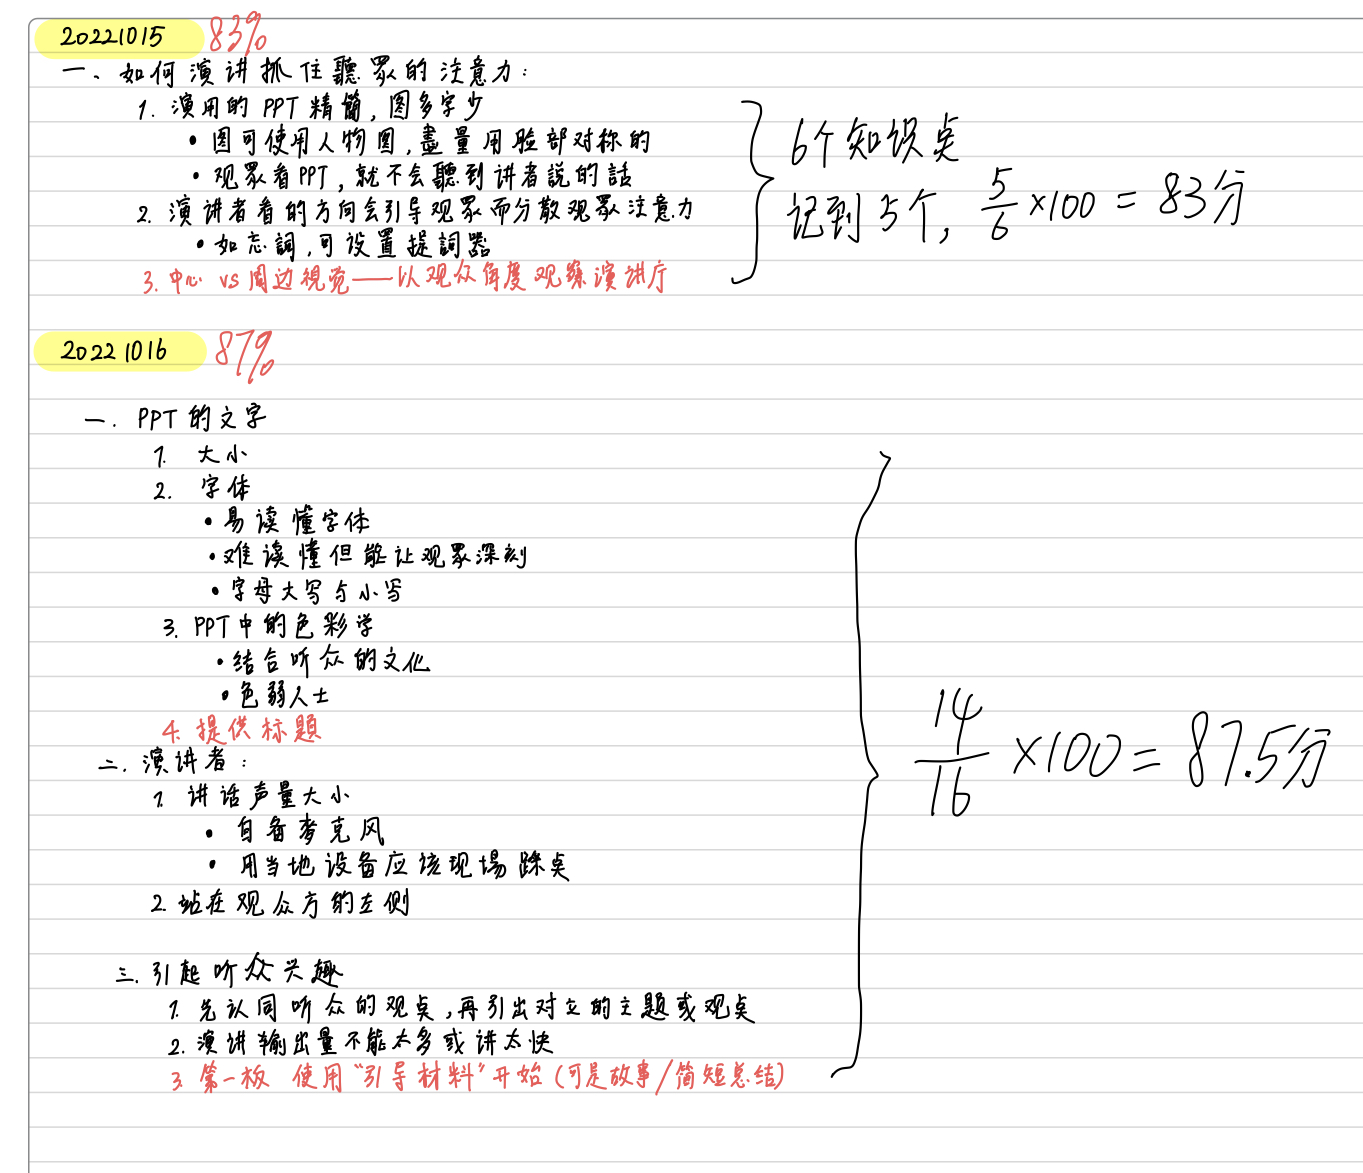 20221015 83%
一、如何演讲抓住聽眾的注意力：
1. 演用的PPT精簡，图多字少
• 图可使用人物图，盡量用脸部对称的
• 观眾看PPT，就不会聽到讲者說的話
2. 演讲者看的方向会引导观眾而分散观眾注意力
• 如忘詞，可设置提詞器
3. 中心 vs 周边視觉——以观众角度观察演讲厅
6个知识点
记到5个，5/6 ×100 = 83分
20221016 87%
一. PPT的文字
1. 大小
2. 字体
• 易读懂字体
• 难读懂但能让观眾深刻
• 字母大写与小写
3. PPT中的色彩学
• 结合听众的文化
• 色弱人士
4. 提供标題
二. 演讲者：
1. 讲话声量大小
• 自备麦克风
• 用当地设备应该现場踩点
2. 站在观众方的左侧
14/16 ×100 = 87.5分
三. 引起听众兴趣
1. 先认同听众的观点，再引出对立的主题或观点
2. 演讲输出量不能太多或讲太快
3 第一板 使用“引导材料”开始（可是故事/简短总结）